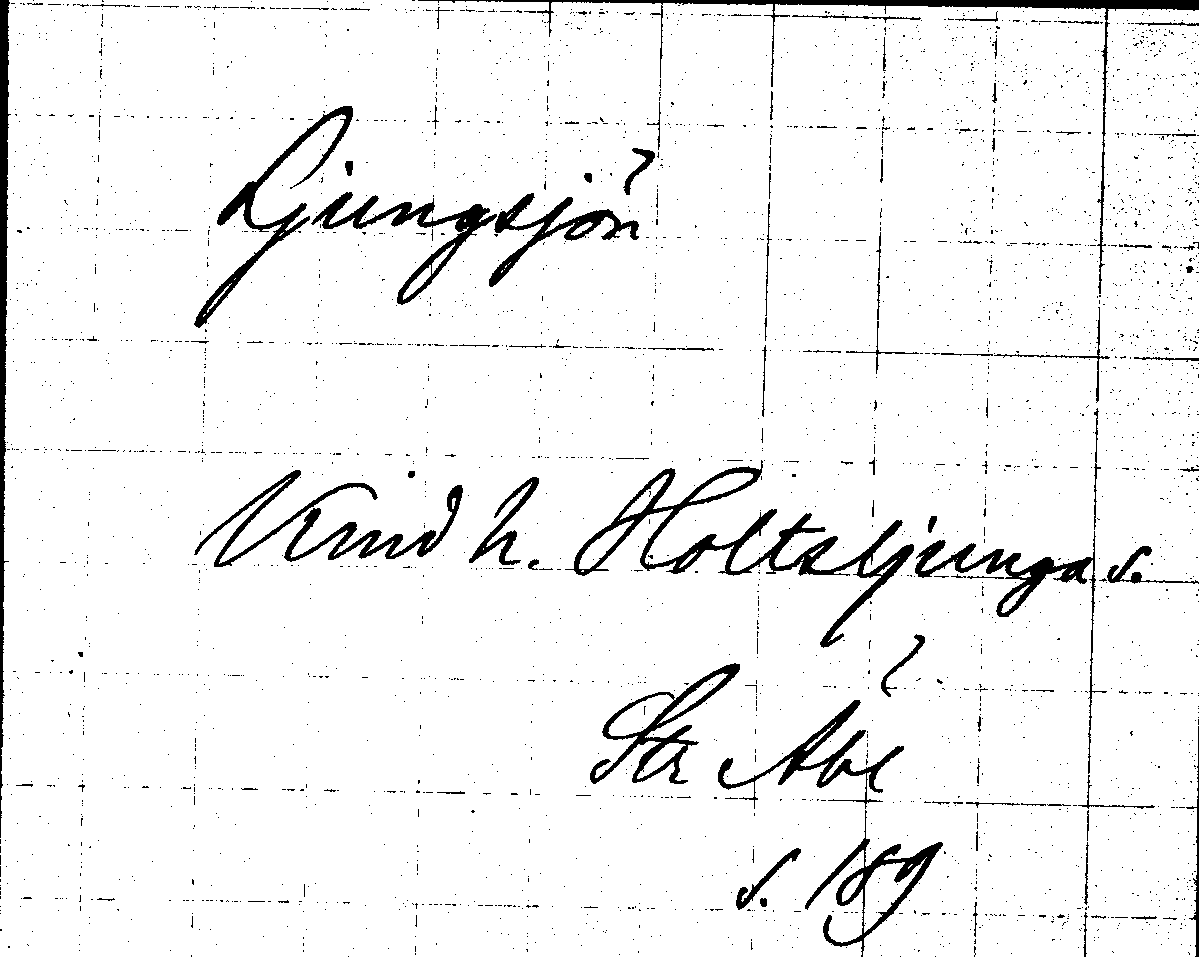 Ljungsjön
Kind h. Holtsljunga s.
Str Åbe
s. 189